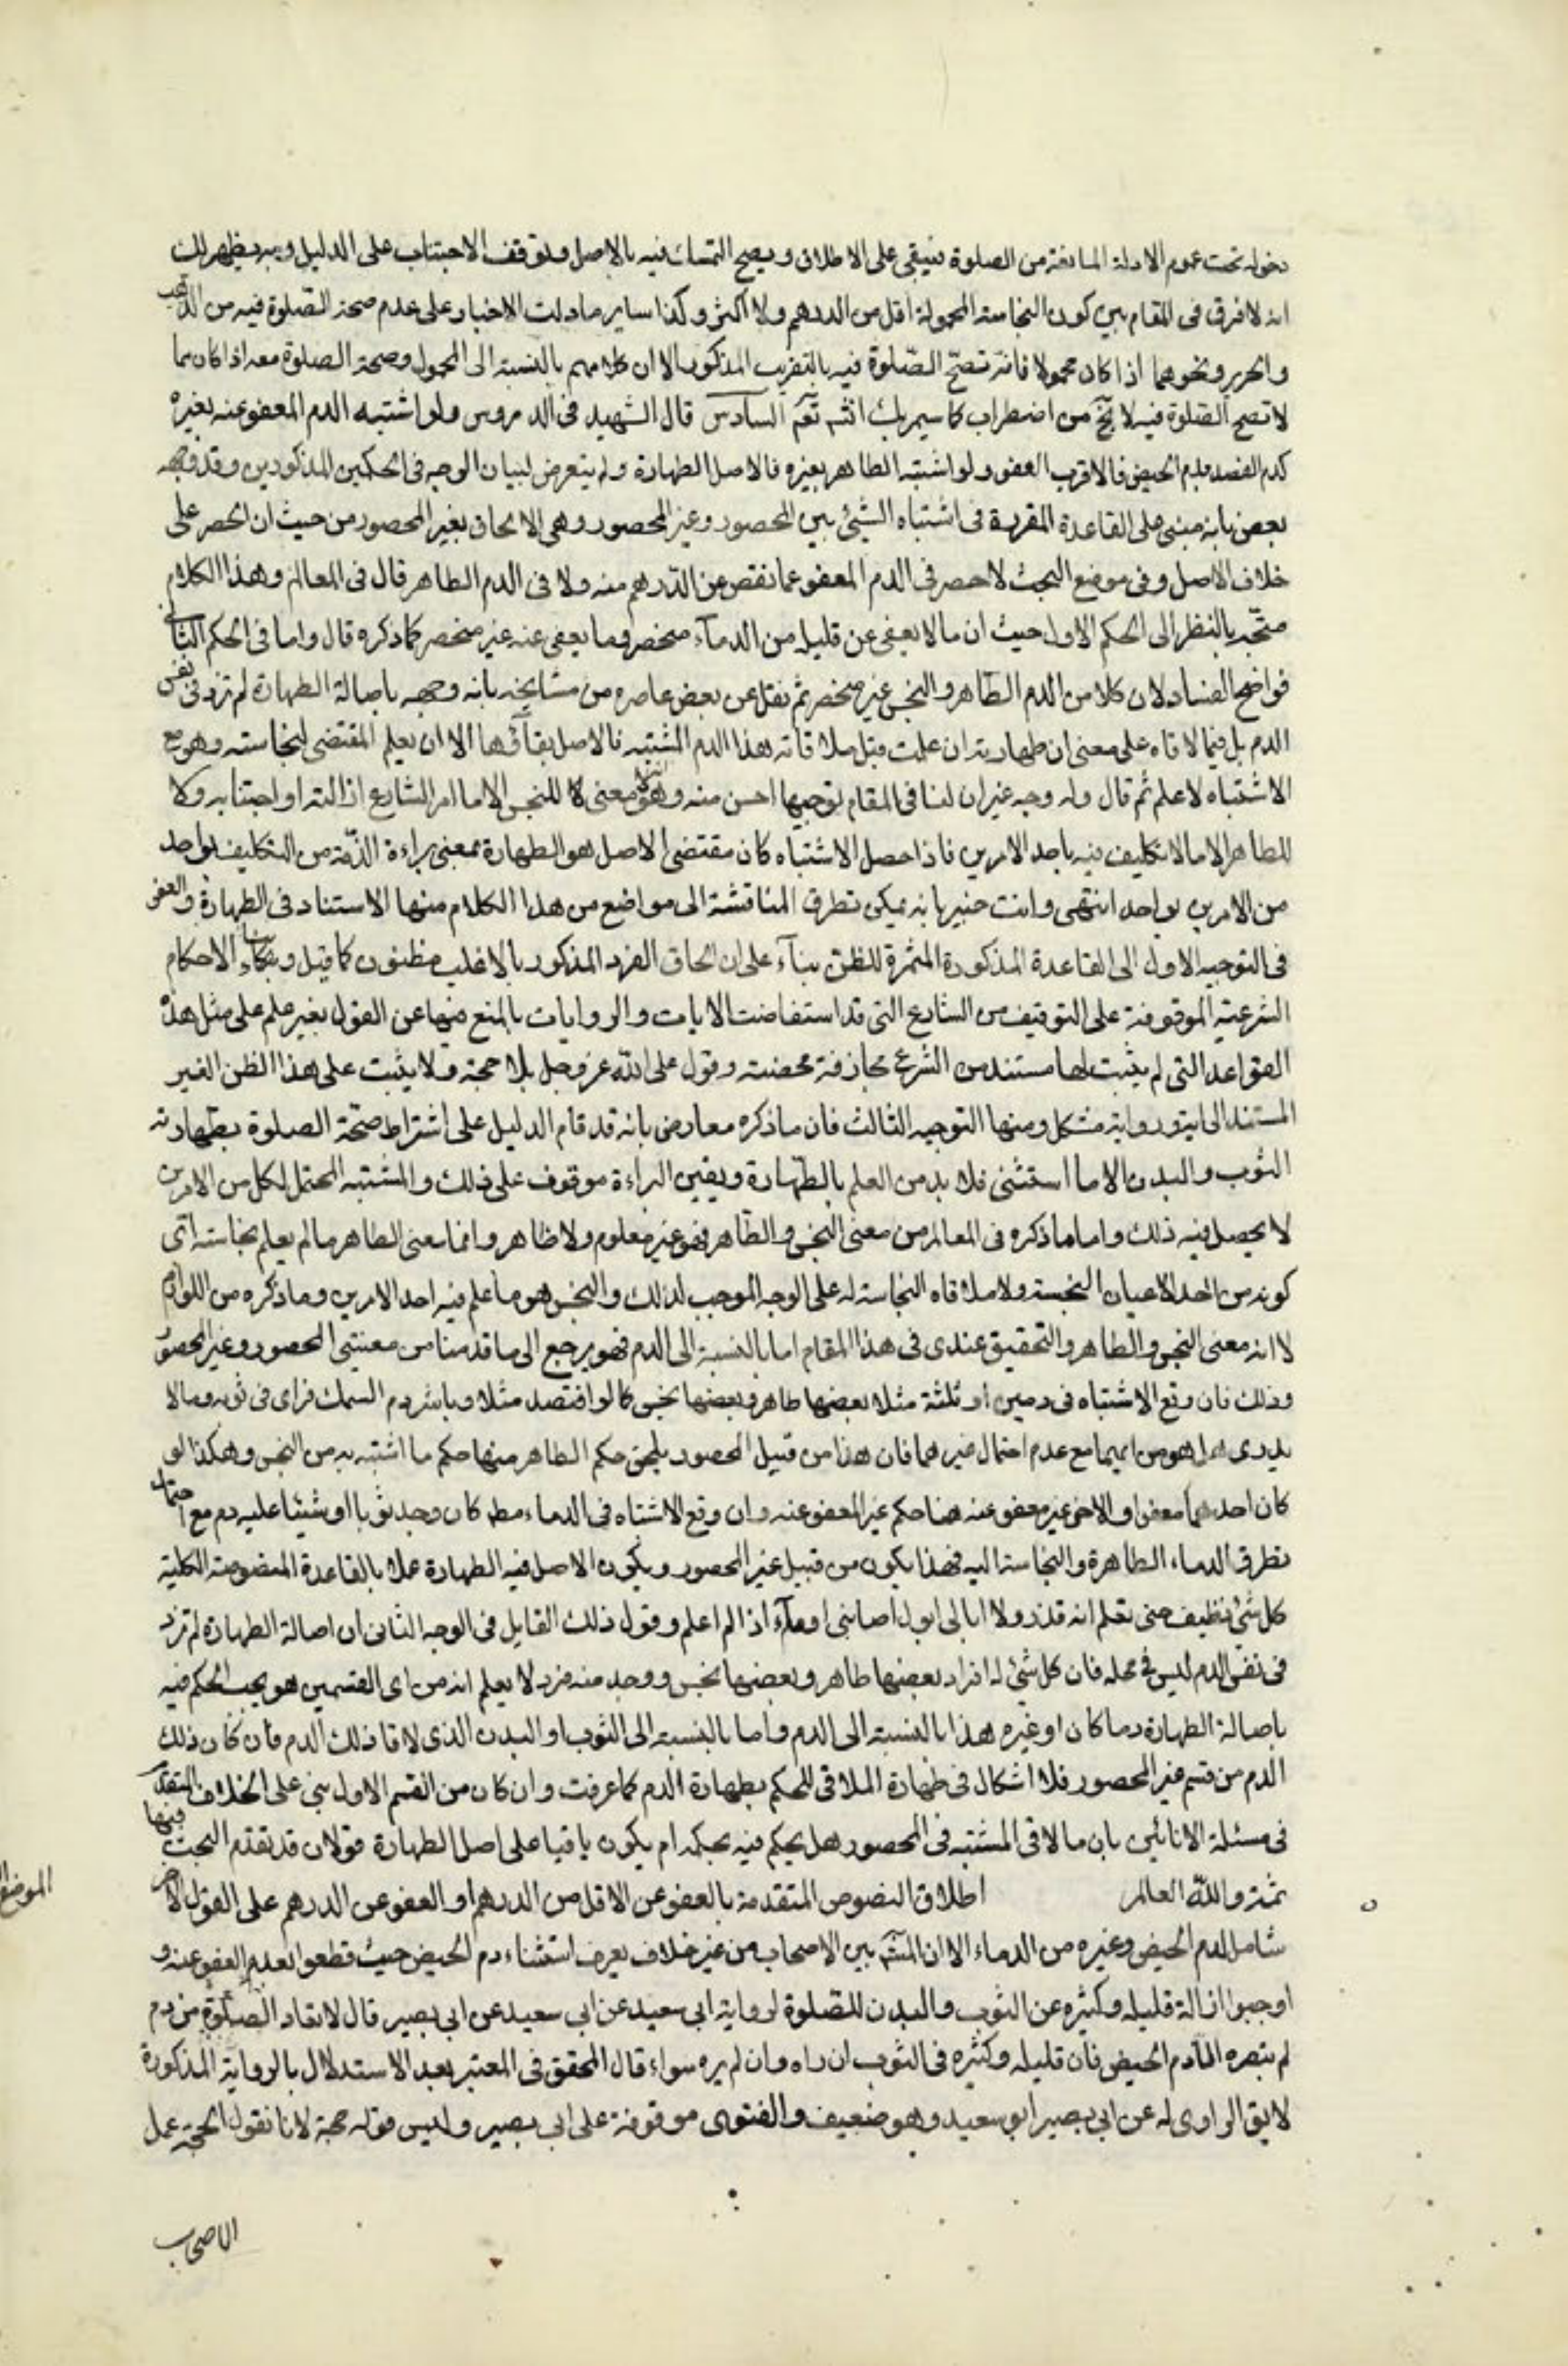 دخوله تحت عموم الادلة المانعة من الصلوة فيبقى على الاطلاق ويصح التمسك فيه بالاصل وتوقف الاجتناب على الدليل وبه يظهر لك
انه لا فرق فى المقام بين كون النجاسة المحمولة اقل من الدرهم ولا اكثر وكذا ساير ما دلت الاخبار على عدم صحة الصلوة فيه من الذهب
والحرير ونحوهما اذا كان محمولا فانه تصح الصلوة فيه بالتقريب المذكور الا ان كلامهم بالنسبة الى المحمول وصحة الصلوة معه اذا كان مما
لا تصح الصلوة فيه لا يخ من اضطراب كما سيمر بك انشم تعم السادس قال الشهيد فى الدروس ولو اشتبه الدم المعفو عنه بغيره
كدم الفصد بدم الحيض فالاقرب العفو ولو اشتبه الطاهر بغيره فالاصل الطهارة ولم يتعرض لبيان الوجه فى الحكمين المذكورين وقد وجهه
بعض بانه مبنى على القاعدة المقررة فى اشتباه الشئ بين المحصور وغير المحصور وهى الالحاق بغير المحصور من حيث ان الحصر على
خلاف الاصل وفى موضع البحث لا حصر فى الدم المعفو عما نقص عن الدرهم منه ولا فى الدم الطاهر قال فى المعالم وهذا الكلام
متجه بالنظر الى الحكم الاول حيث ان ما لا يعفى عن قليله من الدماء منحصر وما يعفى عنه غير منحصر كما ذكره قال واما فى الحكم الثانى
فواضح الفساد لان كلا من الدم الطاهر والنجس غير منحصر ثم نقل عن بعض عاصره من مشايخه بانه وجهه باصالة الطهارة لم ترد فى نفس
الدم بل فيما لاقاه على معنى ان طهارته ان علمت قبل ملاقاته لهذا الدم المشتبه فالاصل بقاؤها الا ان يعلم المقتضى لنجاسته وهو مع
الاشتباه لا علم ثم قال وله وجه غير ان لنا فى المقام توجيها احسن منه وهو انه لا معنى للنجس الا ما امر الشارع ازالته او اجتنابه ولا
للطاهر الا ما لا تكليف فيه باحد الامرين فاذا حصل الاشتباه كان مقتضى الاصل هو الطهارة بمعنى براءة الذمة من التكليف بواحد
من الامرين بواحد انتهى وانت خبير بانه يمكن تطرق المناقشة الى مواضع من هذا الكلام منها الاستناد فى الطهارة والعفو
فى التوجيه الاول الى القاعدة المذكورة المثمرة للظن بناء على ان الحاق الفرد المذكور بالاغلب مظنون كما قيل وبناء الاحكام
الشرعية الموقوفة على التوقيف من الشارع التى قد استفاضت الايات والروايات بالمنع فيها عن القول بغير علم على مثل هذه
القواعد التى لم يثبت لها مستند من الشرع مجازفة محضة وقول على الله عز وجل بلا حجة ولا يثبت على هذا الظن الغير
المستند الى اية ورواية مشكل ومنها التوجيه الثالث فان ما ذكره معارض بانه قد قام الدليل على اشتراط صحة الصلوة بطهارة
الثوب والبدن الا ما استثنى فلا بد من العلم بالطهارة ويقين البراءة موقوف على ذلك والمشتبه المحتمل لكل من الامرين
لا يحصل فيه ذلك واما ما ذكره فى المعالم من معنى النجس والطاهر فهو غير معلوم ولا ظاهر وانما معنى الطاهر ما لم يعلم نجاسته اى
كونه من احد الاعيان النجسة ولا ملاقاه النجاسة له على الوجه الموجب لذلك والنجس هو ما علم فيه احد الامرين وما ذكره من اللوازم
لا انه معنى النجس والطاهر والتحقيق عندى فى هذا المقام اما بالنسبة الى الدم فهو يرجع الى ما قدمنا من معنيى المحصور وغير المحصور
وذلك فان وقع الاشتباه فى دمين او ثلثة مثلا بعضها طاهر وبعضها نجس كما لو افتصد مثلا وباشر دم السمك فراى فى ثوبه وما لا
يدرى هل هو من ايهما مع عدم احتمال غيرهما فان هذا من قبيل المحصور يلحق حكم الطاهر منها حكم ما اشتبه به من النجس وهكذا لو
كان احدهما معفوا والاخر غير معفو عنه هنا حكم غير المعفو عنه وان وقع الاشتباه فى الدماء مطم كان وجد ثوبا او شيئا عليه دم مع احتمال
تطرق الدماء الطاهرة والنجاسة اليه فهذا يكون من قبيل غير المحصور ويكون الاصل فيه الطهارة عملا بالقاعدة المنصوصة الكلية
كل شئ نظيف حتى تعلم انه قذر ولا ابالى ابول اصابنى او ماء اذا لم اعلم وقول ذلك القايل فى الوجه الثانى ان اصالة الطهارة لم ترد
فى نفس الدم ليس فى محله فان كل شئ له افراد بعضها طاهر وبعضها نجس ووجد منه فرد لا يعلم انه من اى القسمين هو يجب الحكم فيه
باصالة الطهارة دما كان او غيره هذا بالنسبة الى الدم واما بالنسبة الى الثوب او البدن الذى لاقا ذلك الدم فان كان ذلك
الدم من قسم غير المحصور فلا اشكال فى طهارة الملاقى للحكم بطهارة الدم كما عرفت وان كان من القسم الاول بنى على الخلاف المتقدم
فى مسئلة الانائين بان ما لاقى المشتبه فى المحصور هل يحكم فيه بحكمه ام يكون باقيا على اصل الطهارة قولان قد تقدم البحث فيها
ثمة والله العالم اطلاق النصوص المتقدمة بالعفو عن الاقل من الدرهم او العفو عن الدرهم على القول الاخر
شامل لدم الحيض وغيره من الدماء الا ان المشم بين الاصحاب من غير خلاف يعرف استثناء دم الحيض حيث قطعوا بعدم العفو عنه و
اوجبوا ازالة قليله وكثيره عن الثوب والبدن للصلوة لرواية ابى سعيد عن ابى سعيد عن ابى بصير قال لا تعاد الصلوة من دم
لم تبصره الا دم الحيض فان قليله وكثيره فى الثوب ان راه وان لم يره سواء قال المحقق فى المعتبر بعد الاستدلال بالرواية المذكورة
لا يق الراوى له عن ابى بصير ابو سعيد وهو ضعيف والفتوى موقوفة على ابى بصير وليس قوله حجة لانا نقول الحجة عمل
الاصحاب